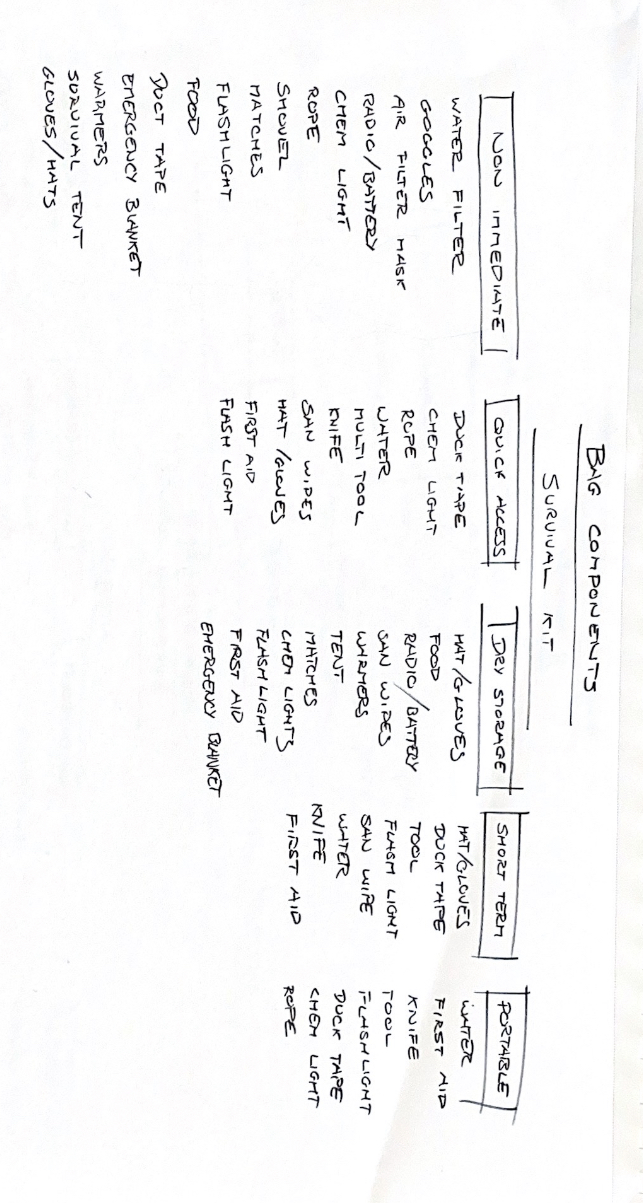 BAG COMPONENTS
SURVIVAL KIT
NON IMMEDIATE
WATER FILTER
GOGGLES
AIR FILTER MASK
RADIO/BATTERY
CHEM LIGHT
ROPE
SHOVEL
MATCHES
FLASHLIGHT
FOOD
DUCT TAPE
EMERGENCY BLANKET
WARMERS
SURVIVAL TENT
GLOVES/HATS
QUICK ACCESS
DUCK TAPE
CHEM LIGHT
ROPE
WATER
MULTI TOOL
KNIFE
SAN WIPES
HAT/GLOVES
FIRST AID
FLASH LIGHT
DRY STORAGE
HAT/GLOVES
FOOD
RADIO/BATTERY
SAN WIPES
WARMERS
TENT
MATCHES
CHEM LIGHTS
FLASH LIGHT
FIRST AID
EMERGENCY BLANKET
SHORT TERM
HAT/GLOVES
DUCK TAPE
TOOL
FLASH LIGHT
SAN WIPE
WATER
KNIFE
FIRST AID
PORTABLE
WATER
FIRST AID
KNIFE
TOOL
FLASHLIGHT
DUCK TAPE
CHEM LIGHT
ROPE